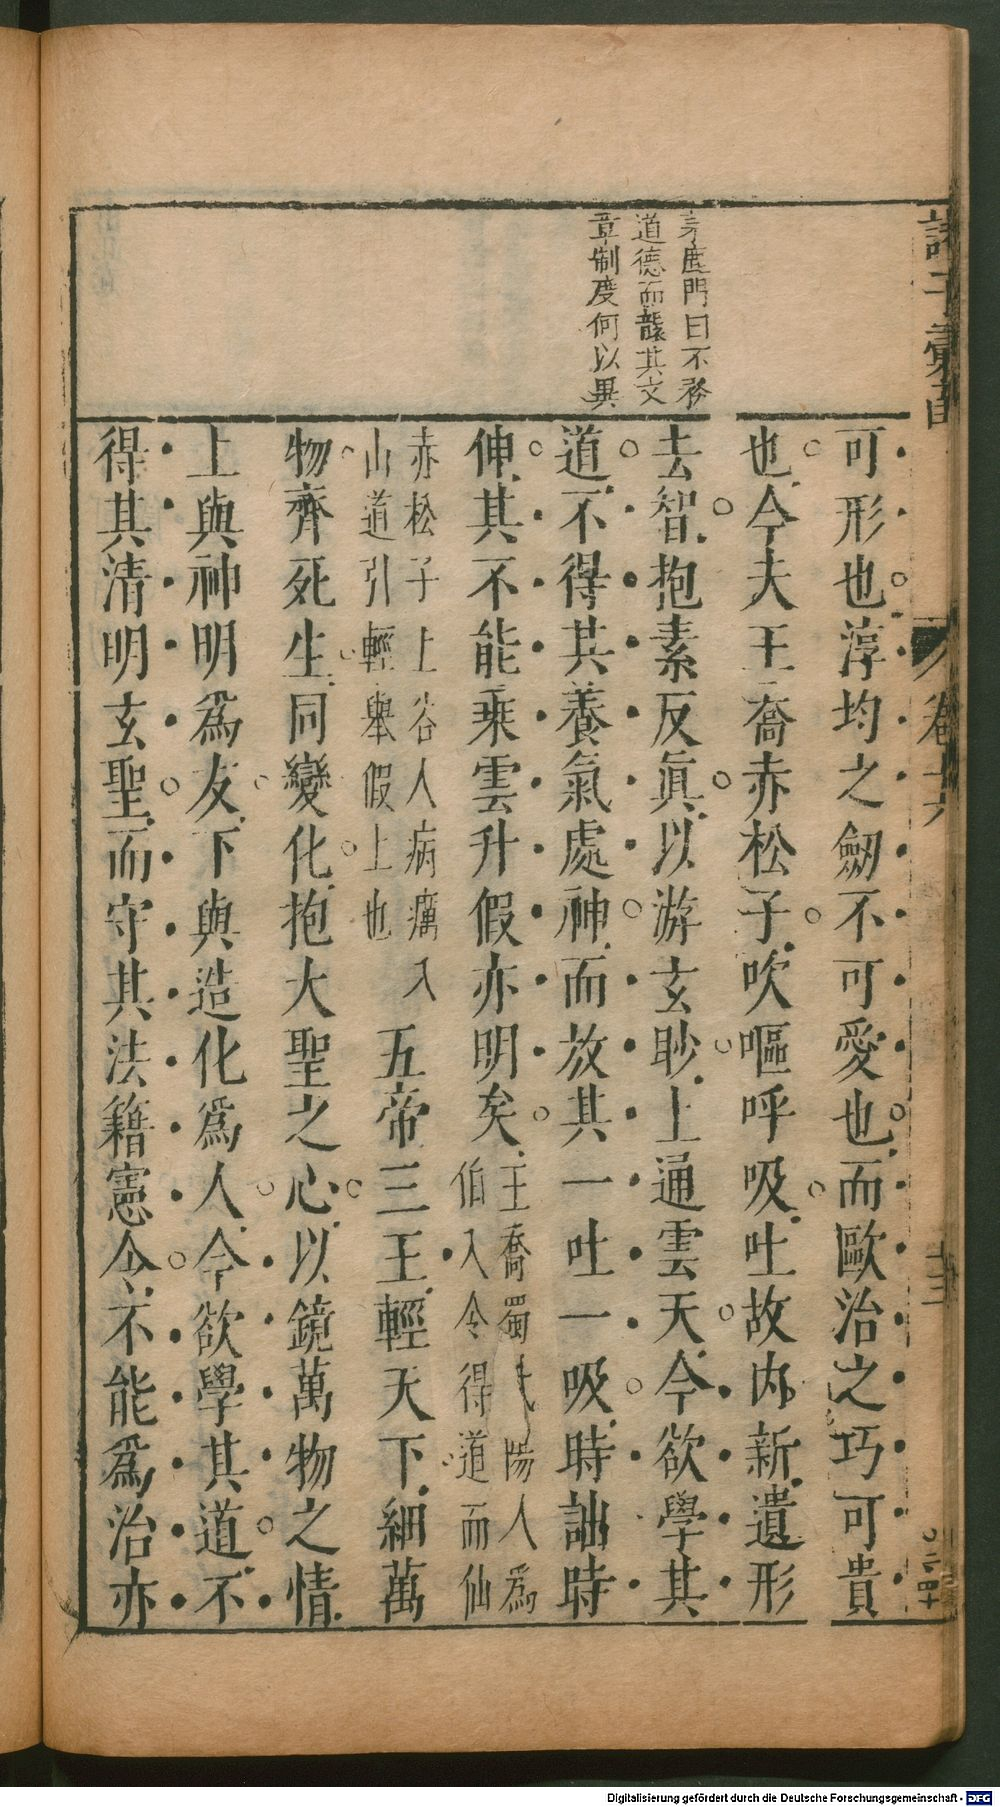 諸子彙函
卷十六
十三
茅鹿門曰不務
道德而襲其文
章制度何以異
可形也淳均之劒不可愛也而歐治之巧可貴
也今夫王喬赤松子吹嘔呼吸吐故内新遺形
去智抱素反眞以游玄眇上通雲天今欲學其
道不得其養氣處神而放其一吐一吸時詘時
伸其不能乘雲升假亦明矣王喬蜀武陽人爲
伯人令得道而仙
赤松子上谷人病癘入
山道引輕舉假上也
五帝三王輕天下細萬
物齊死生同變化抱大聖之心以鏡萬物之情
上與神明爲友下與造化爲人今欲學其道不
得其清明玄聖而守其法籍憲令不能爲治亦
Digitalisierung gefördert durch die Deutsche Forschungsgemeinschaft - DFG